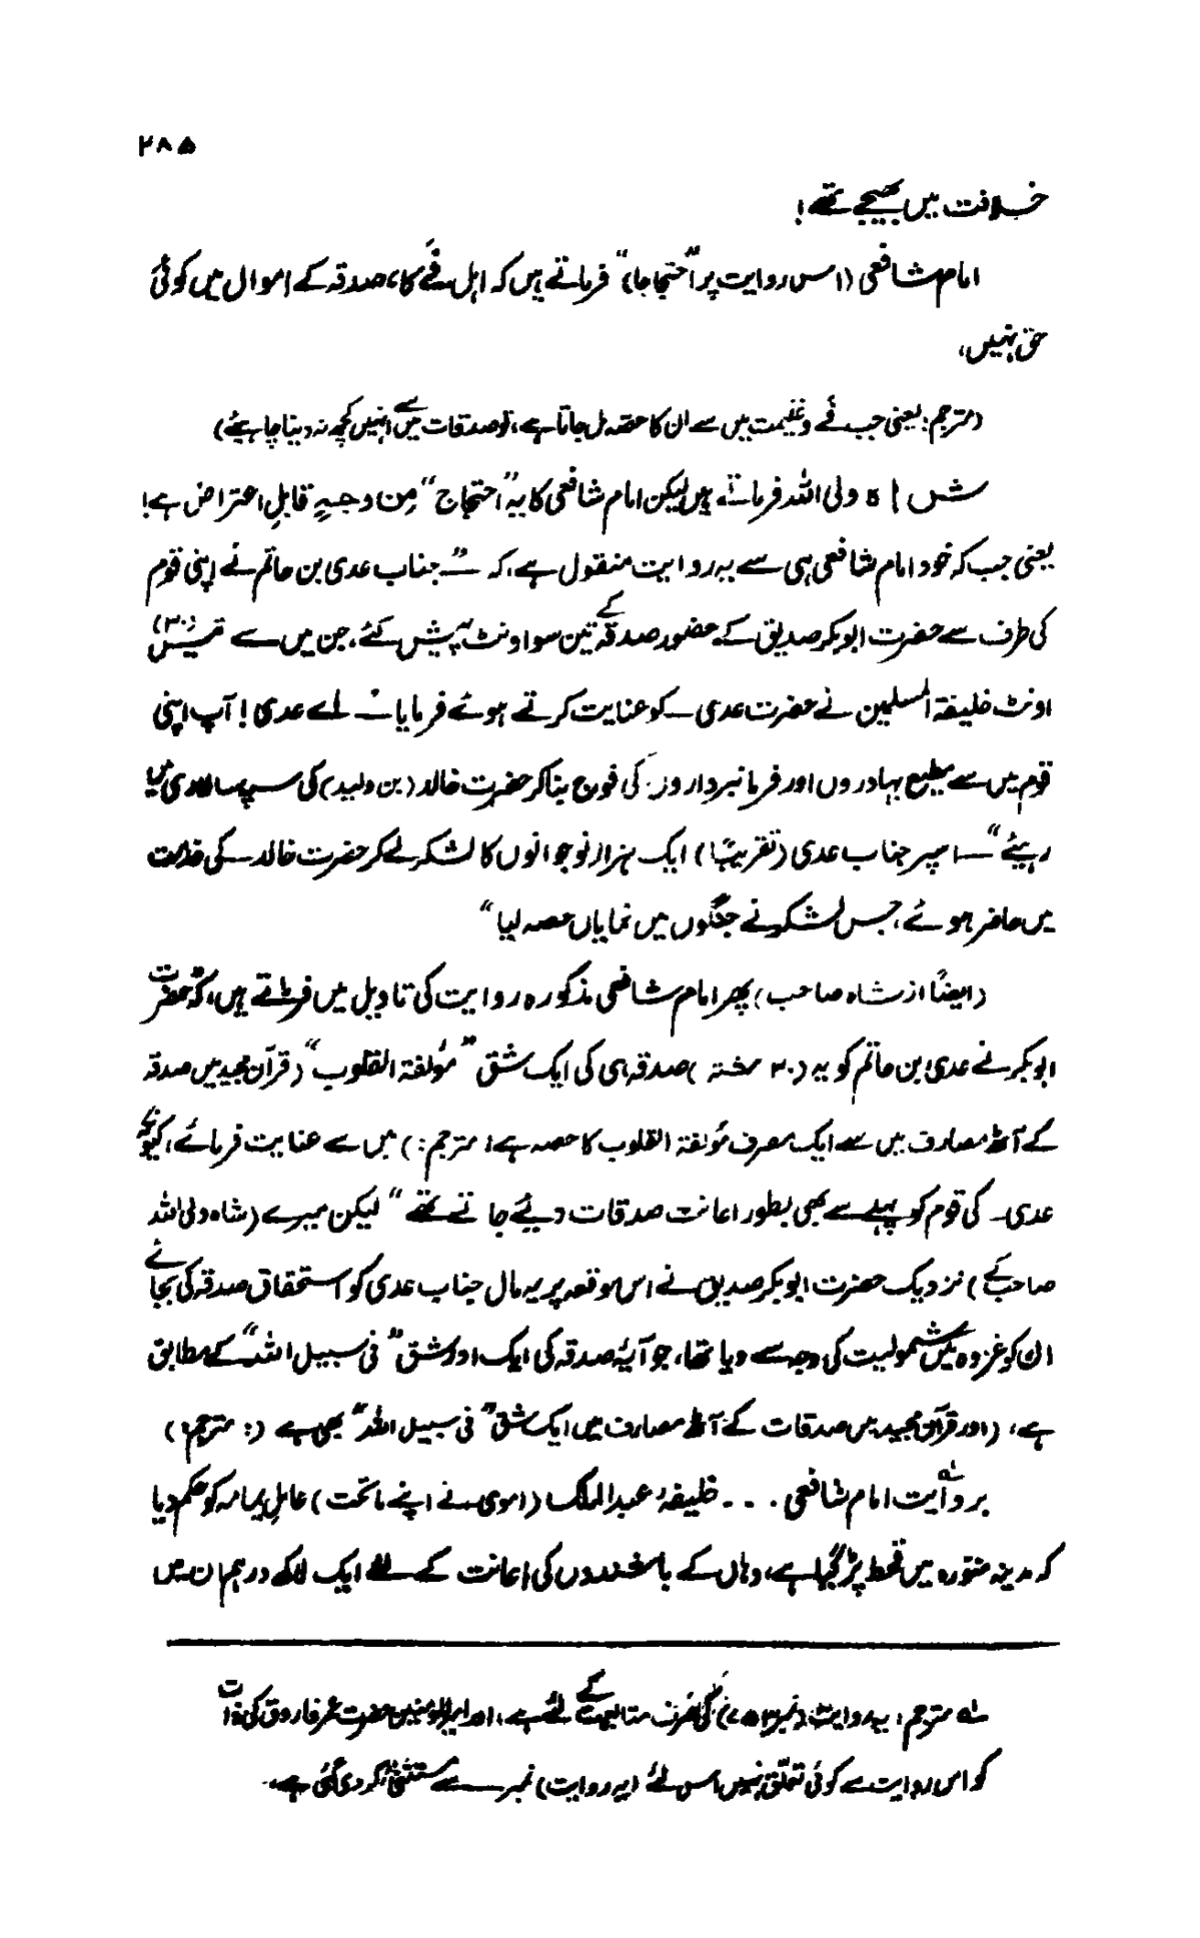 ۲۸۵
خلافت میں بھیجے تھے!
امام شافعی (اس روایت پر "احتجاجاً") فرماتے ہیں کہ اہل فَے کا، صدقہ کے اموال میں کوئی
حق نہیں،
(مترجم: یعنی جب فَے و غنیمت میں سے ان کا حصہ مل جاتا ہے، تو صدقات میں سے انہیں کچھ نہ دینا چاہیئے)
شاہ ولی اللہ فرماتے ہیں لیکن امام شافعی کا یہ "احتجاج" مِن وجہٍ قابلِ اعتراض ہے!
یعنی جب کہ خود امام شافعی ہی سے یہ روایت منقول ہے، کہ — "جناب عدی بن حاتم نے اپنی قوم
کی طرف سے حضرت ابوبکر صدیق کے حضور صدقہ کے تین سو اونٹ پیش کئے، جن میں سے تیس (۳۰)
اونٹ خلیفۃ المسلمین نے حضرت عدی کو عنایت کرتے ہوئے فرمایا — اے عدی! آپ اپنی
قوم میں سے مطیع بہادروں اور فرمانبرداروں کی فوج بناکر حضرت خالد (بن ولید) کی سپہ سالاری میں
رہیئے" — اسپر جناب عدی (تقریباً) ایک ہزار نوجوانوں کا لشکر لے کر حضرت خالد کی خدمت
میں حاضر ہوئے، جس لشکر نے جنگوں میں نمایاں حصہ لیا"
(ایضاً از شاہ صاحب) پھر امام شافعی مذکورہ روایت کی تاویل میں فرماتے ہیں، کہ "حضرت
ابوبکر نے عدی بن حاتم کو یہ (۳۰ شتر) صدقہ ہی کی ایک شق "مؤلفۃ القلوب" (قرآن مجید میں صدقہ
کے آٹھ مصارف میں سے ایک مصرف مؤلفۃ القلوب کا حصہ ہے: مترجم:) میں سے عنایت فرمائے، کیونکہ
عدی کی قوم کو پہلے سے بھی بطور اعانت صدقات دیئے جاتے تھے" لیکن میرے (شاہ ولی اللہ
صاحب کے) نزدیک حضرت ابوبکر صدیق نے اس موقعہ پر یہ مال جناب عدی کو استحقاق صدقہ کی بجائے
ان کو غزوہ میں شمولیت کی وجہ سے دیا تھا، جو آیۂ صدقہ کی ایک اور شق "فی سبیل اللہ" کے مطابق
ہے، (اور قرآن مجید میں صدقات کے آٹھ مصارف میں ایک شق "فی سبیل اللہ" بھی ہے (: مترجم:)
بروایت امام شافعی . . . خلیفۂ عبدالملک (اموی نے اپنے ماتحت) عاملِ یمامہ کو حکم دیا
کہ مدینہ منورہ میں قحط پڑ گیا ہے، وہاں کے باشندوں کی اعانت کے لئے ایک لاکھ درہم ان میں
لہ مترجم: یہ روایت (نمبر) کی صرف متابعت کے لئے ہے، اور امیر المومنین حضرت عمر فاروق کی ذات
کو اس روایت سے کوئی تعلق نہیں اس لئے (یہ روایت) نمبر سے مستثنیٰ کردی گئی ہے۔